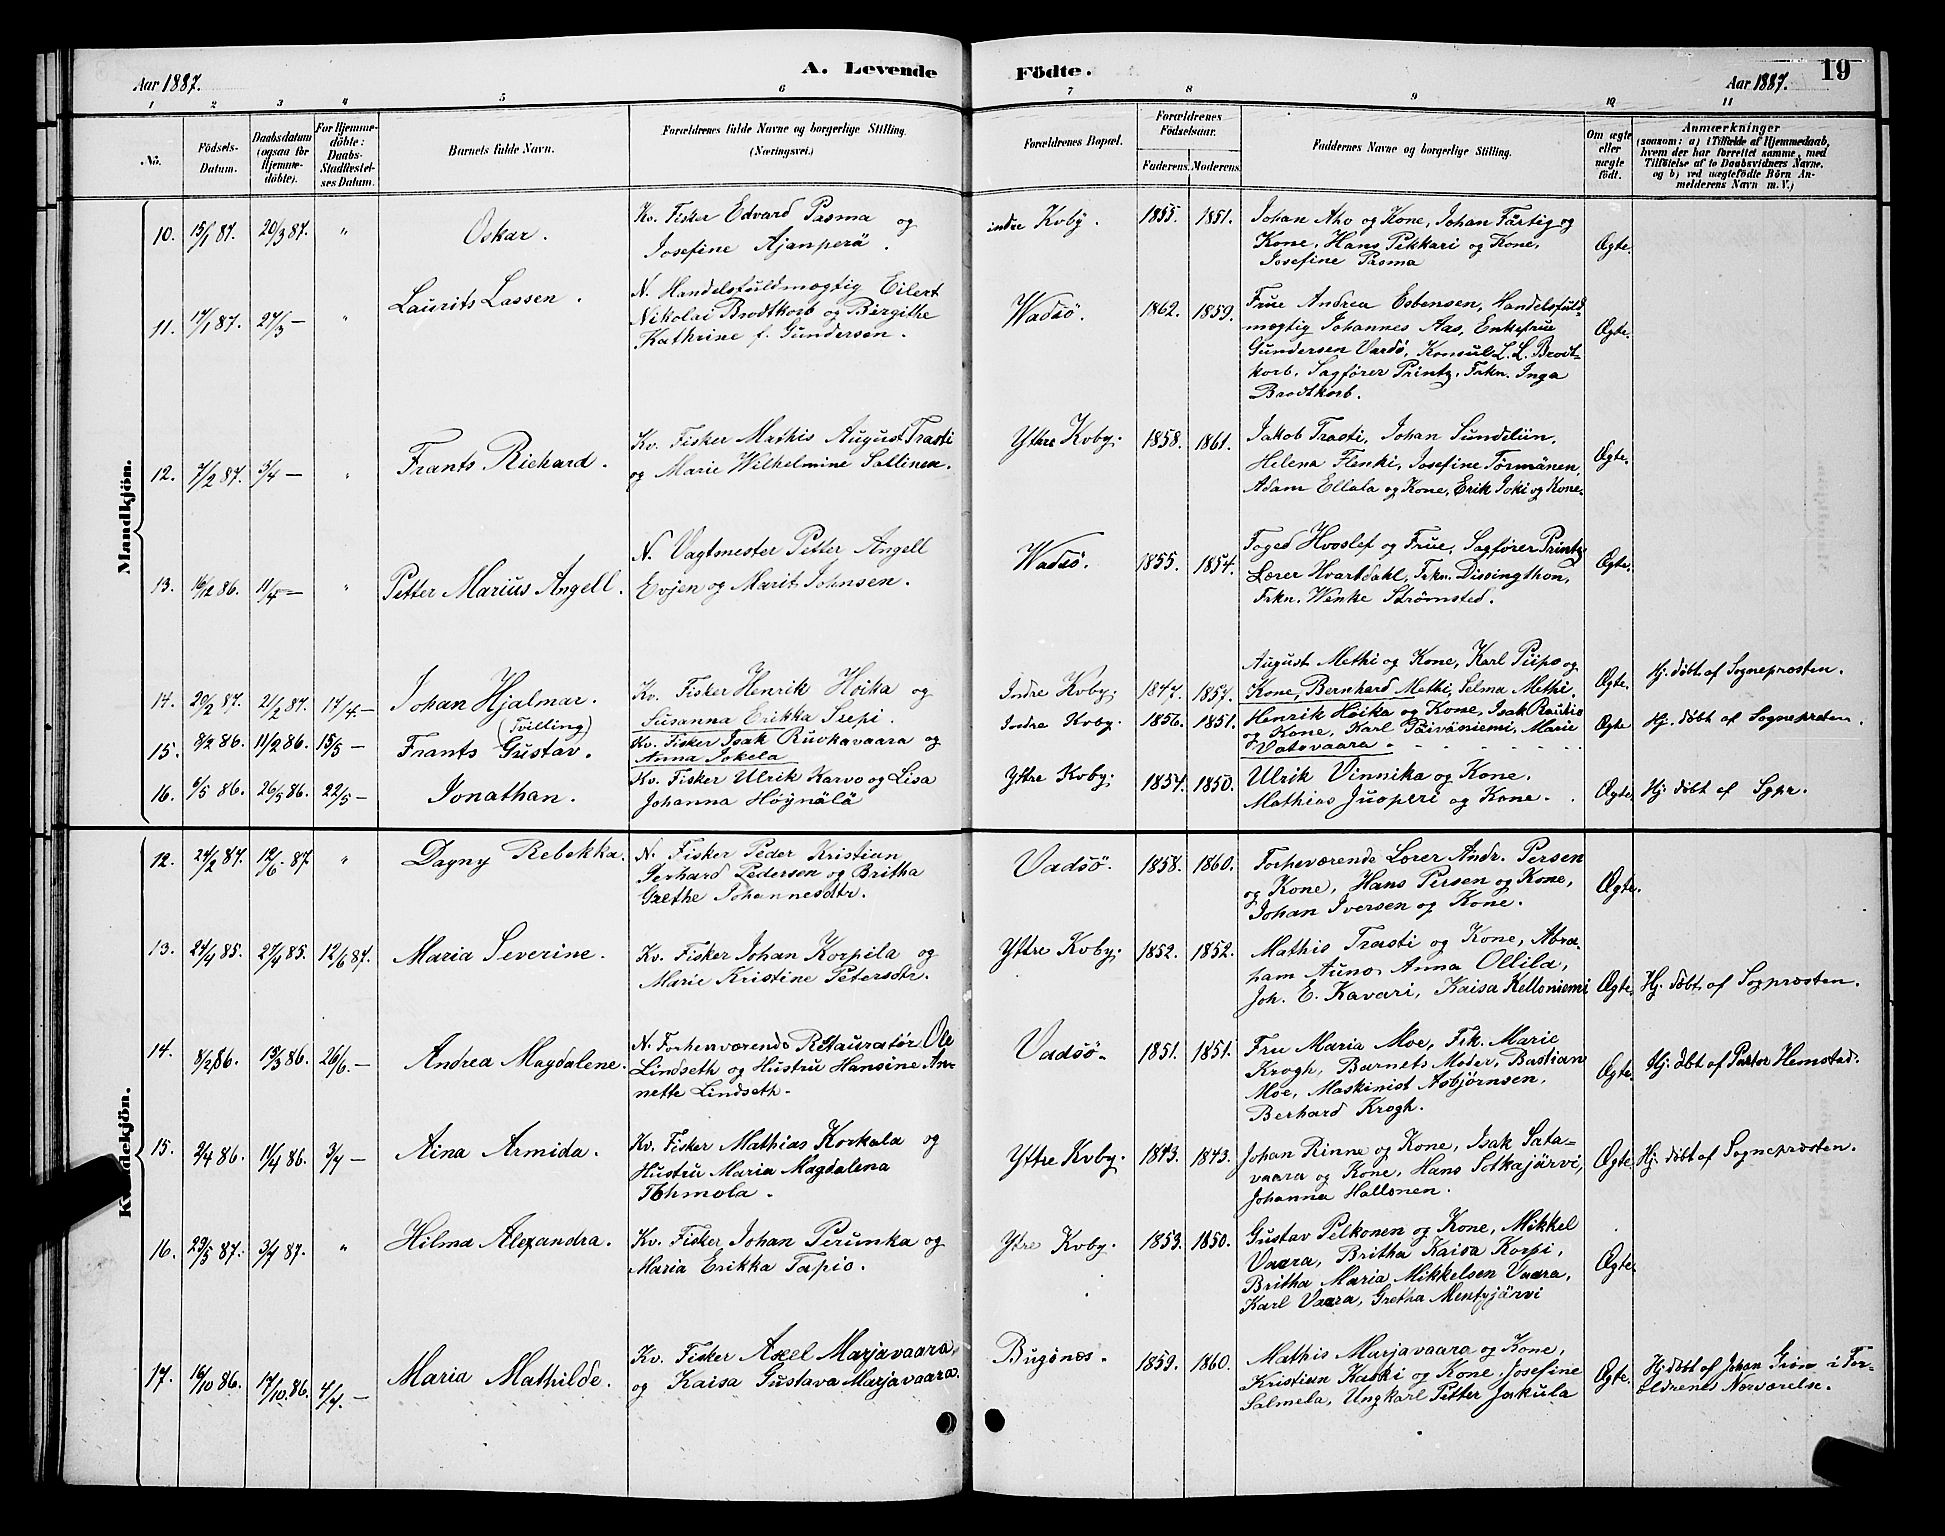 A. Levende Födte.
19
Aar 1887.
Aar 1887.
1 2 3 4 5 6 7 8 9 10 11
No.
Födsels-
Datum.
Daabsdatum
(ogsaa for
Hjemme-
döbte).
For Hjemme-
döbte:
Daabs-
Stadfæstel-
ses Datum.
Barnets fulde Navn.
Forældrenes fulde Navne og borgerlige Stilling.
(Næringsvei.)
Forældrenes Bopæl.
Forældrenes
Födselsaar.
Faderens. Moderens.
Faddernes Navne og borgerlige Stilling.
Om ægte
eller
uægte
födt.
Anmærkninger
(saasom: a) i Tilfælde af Hjemmedaab,
hvem der har forrettet samme, med
Tilföielse af to Daabsvidners Navne,
og b) ved uægtefödte Börn An-
melderens Navn m. V.)
Mandkjön.
10. 15/1 87. 20/3 87. " Oskar.
Kv. Fisker Edvard Pasma og
Josefine Ajanperä.
indre Kvby. 1855. 1851.
Johan Aho og Kone, Johan Färtig og
Kone, Hans Pekkari og Kone,
Josefine Pasma
Ægte.
11. 17/1 87. 27/3 — " Laurits Lassen.
N. Handelsfuldmægtig Eilert
Nikolai Brodtkorb og Birgithe
Kathrine f. Gundersen.
Wadsö. 1862. 1859.
Frue Andrea Esbensen, Handelsfuld-
mægtig Johannes Aas, Enkefrue
Gundersen Vardö, Konsul L. L. Brodt-
korb, Sagfører Printz, Frkn. Inga
Brodtkorb.
Ægte.
12. 7/2 87. 3/4 — " Frants Richard.
Kv. Fisker Mathis August Trasti
og Marie Wilhelmine Sallinen.
Ythre Kvby. 1858. 1861.
Jakob Trasti, Johan Sundelin,
Helena Flenki, Josefine Törmänen,
Adam Ellala og Kone, Erik Joki og Kone.
Ægte.
13. 16/12 86. 11/4 — " Petter Marius Angell.
N. Vagtmester Petter Angell
Evjen og Marit Johnsen.
Wadsö. 1855. 1854.
Foged Hvoslef og Frue, Sagfører Printz
Lærer Hvartdahl, Frkn. Dissingthon,
Frkn. Wenke Strømsted.
Ægte.
14. 20/2 87. 21/2 87. 17/4 — Johan Hjalmar.
Kv. Fisker Henrik Hoika og
Susanna Erikka Sepi.
Indre Kvby. 1847. 1857.
August Methi og Kone, Karl Piipo og
Kone, Bernhard Methi, Selma Methi.
Ægte. Hj. döbt af Sognepræsten.
15. 8/2 86. 11/2 86. 15/5 — (Tvilling)
Frants Gustav.
Kv. Fisker Isak Ruokavaara og
Anna Jokela
Indre Kvby. 1856. 1851.
Henrik Hoika og Kone, Isak Rautio
og Kone, Karl Päiväniemi, Marie
Vatovaara.
Ægte Hj. döbt af Sognepræten.
16. 6/5 86. 26/5 86. 22/5 — Jonathan.
Kv. Fisker Ulrik Karvo og Lisa
Johanna Höynälä
Ytre Kvby. 1854. 1850.
Ulrik Vinnika og Kone.
Mathias Juoperi og Kone.
Ægte. Hj. döbt af Sgpr.
Kvindekjön.
12. 24/2 87. 12/6 87. " Dagny Rebekka.
N. Fisker Peder Kristian
Gerhard Pedersen og Britha
Grethe Johannesdtr.
Vadsö. 1858. 1860.
Forheværende Lærer Andr. Persen
og Kone, Hans Persen og Kone,
Johan Iversen og Kone.
Ægte.
13. 24/4 85. 27/4 85. 12/6 87. Maria Severine.
Kv. Fisker Johan Korpila og
Marie Kristine Petersdtr.
Ytre Kvby. 1852. 1852.
Mathis Trasti og Kone, Abra-
ham Auno, Anna Ollila,
Joh. E. Kavari, Kaisa Kelloniemi
Ægte. Hj. döbt. af Sogpræsten.
14. 8/2 86. 19/3 86. 26/6 — Andrea Magdalene.
N. Forhenværende Restauratør Ole
Lindseth og Hustru Hansine An-
nette Lindseth.
Vadsö. 1851. 1851.
Fru Maria Moe, Frk. Marie
Krogh, Barnets Moder, Bastian
Moe, Maskinist Asbjørnsen,
Berhard Krogh.
Ægte. Hj. döbt af Pastor Hemstad.
15. 2/4 86. 11/4 86. 3/7 — Aina Armida.
Kv. Fisker Mathias Korkala og
Hustru Maria Magdalena
Ythre Kvby. 1843. 1843.
Johan Rinne og Kone, Isak Sata-
vaara og Kone, Hans Sotkajärvi,
Johanna Hallonen.
Ægte. Hj. döbt af Sognepræsten.
16. 29/5 87. 3/7 87. " Hilma Alexandra.
Kv. Fisker Johan Perunka og
Maria Erikka Tapio.
Ytre Kvby. 1853. 1850.
Gustav Pelkonen og Kone, Mikkel
Vaara, Britha Kaisa Korpi,
Britha Maria Mikkelsen Vaara,
Karl Vaara, Gretha Mentyjärvi
Ægte.
17. 16/10 86. 17/10 86. 4/7 — Maria Mathilde.
Kv. Fisker Axel Marjavaara,
og Kaisa Gustava Marjavaara.
Bugönes. 1859. 1860.
Mathis Marjavaara og Kone,
Kristian Kakki og Kone, Josefine
Salmela, Ungkarl Petter Jakula
Ægte. Hj. döbt af Johan Grön i For-
ældrenes Nærværelse.